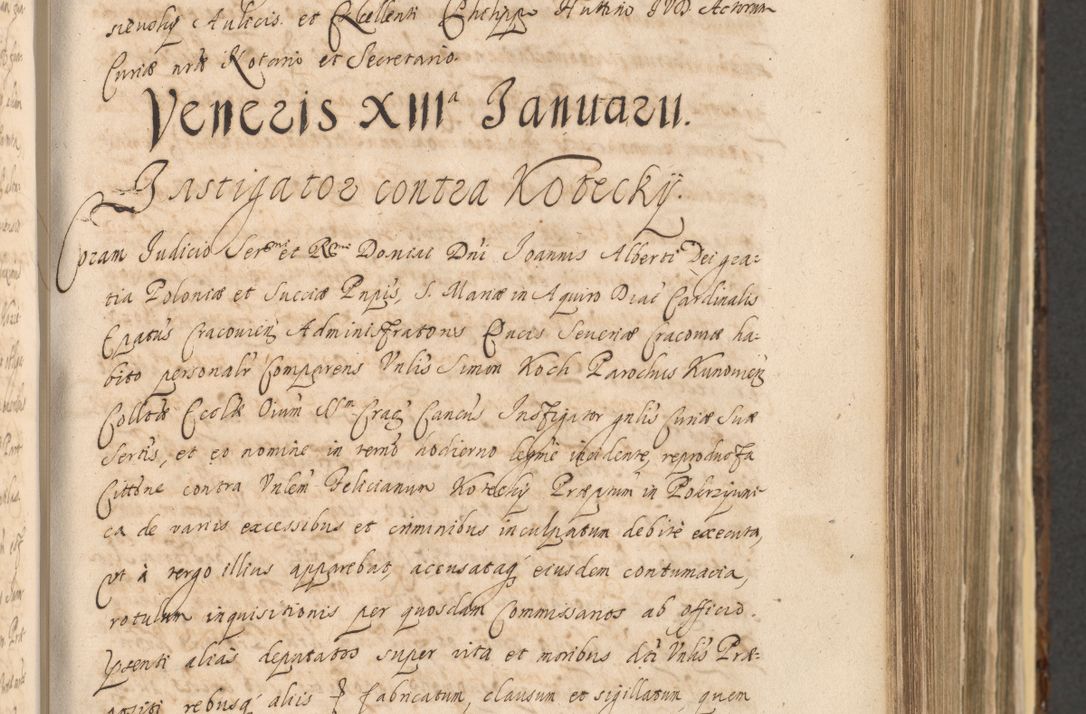 Aulicis et Excellenti Philippo Huttino JUD Actorum
Curiæ nræ Notario et Secretario.
Veneris XIIIa Januarii.
Instigator contra Kotecky.
Coram Judicio Sermi et Rmi Domini Dni Joannis Alberti Dei gra-
tia Poloniæ et Sueciæ Pnpis, S. Mariæ in Aquiro Diac Cardinalis
Epatus Cracovien Administratoris Ducis Severiæ Cracoviæ ha-
bito personalr Comparens Vnlis Simon Koch Parochus Kunovien
Colltæ Ecclæ Oium SSm Crac Cancus Instigator gnlis Curiæ Suæ
Sertis, et eo nomine in termo hodierno legme incidente, reproducta
Cittone contra Vnlem Felicianum Kotecky Præptum in Pobrzynni-
ca de variis excessibus et criminibus inculpatum debite executa,
ut à tergo illius apparebat, acusatag eiusdem contumacia,
rotulum inquisitionis per quosdam Commissarios ab officio
psenti alias deputatos super vita et moribus dcti Vnlis Præ-
positi rebusq aliis fabricatum, clausum et sigillatum, quem